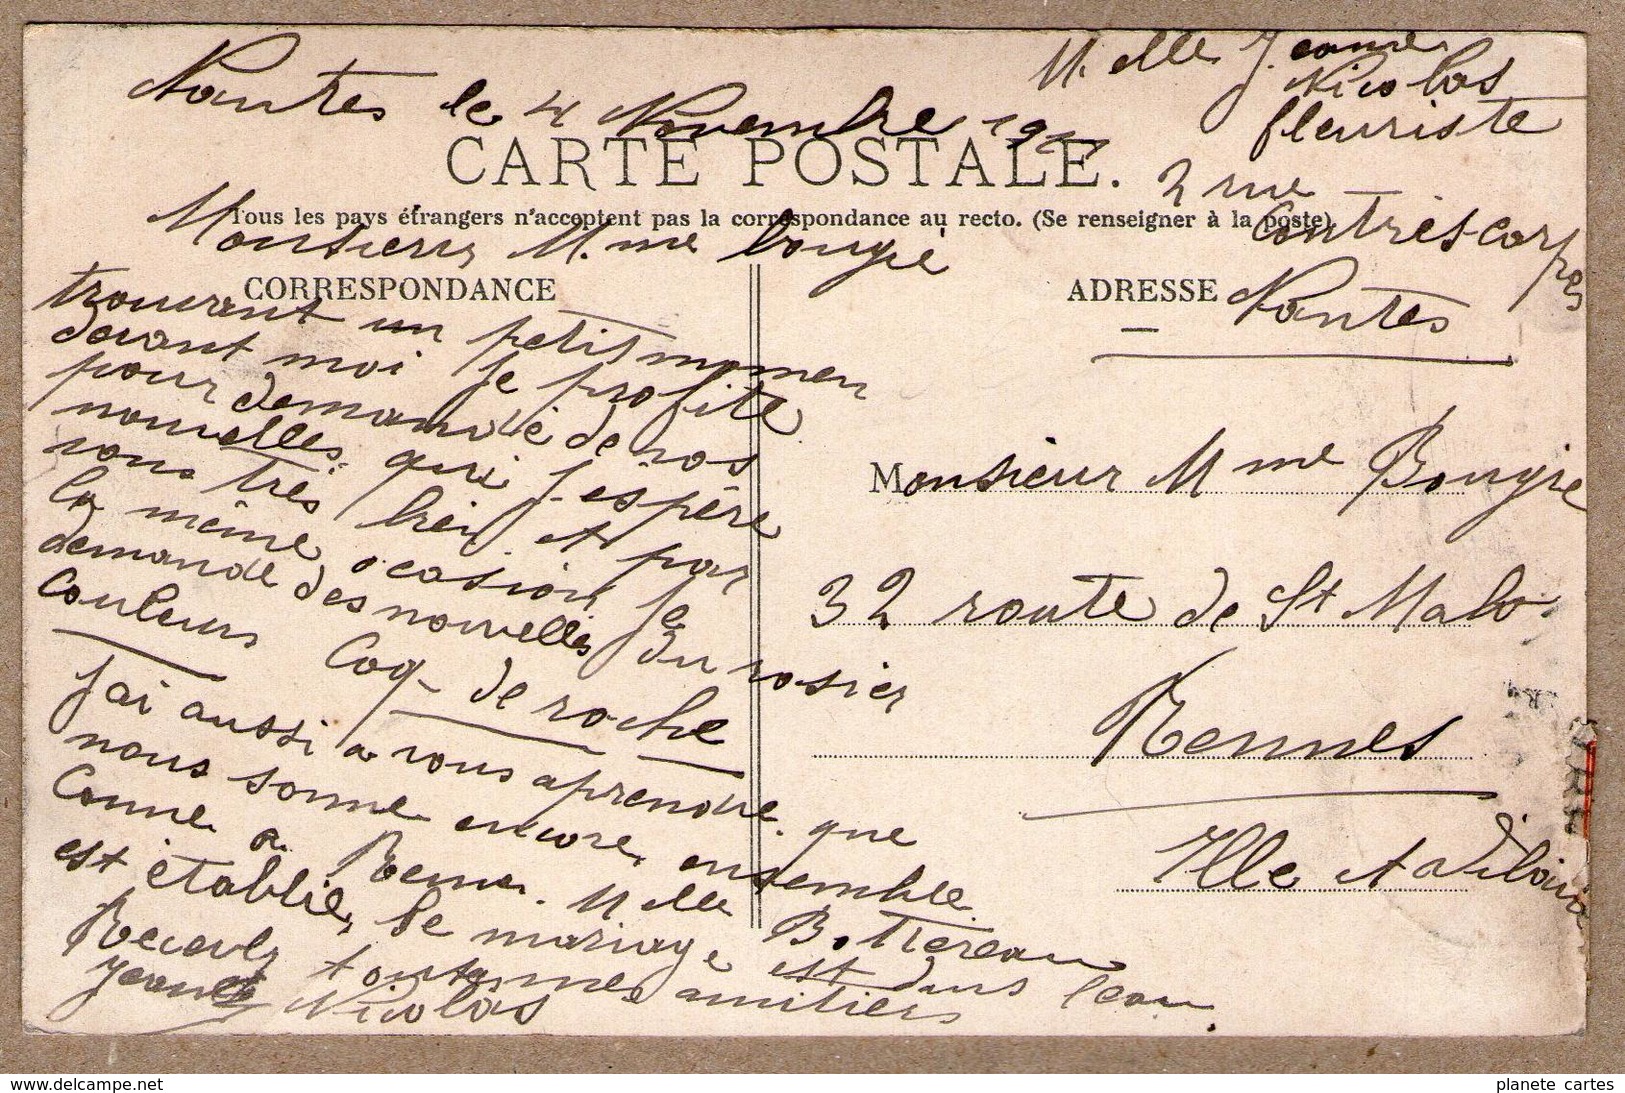 Nantes le 4 Novembre
Melle Jeanne
Nicolas
fleuriste
2 rue
Contrescarpes
Nantes
CARTE POSTALE.
Tous les pays étrangers n'acceptent pas la correspondance au recto. (Se renseigner à la poste).
CORRESPONDANCE
ADRESSE
Monsieur Mme bougié
trouvant un petit momen
devant moi je profite
pour demandé de vos
nouvelles. qui j'espère
vous très bien et par
la même ocasion je
demande des nouvelles du rosier
Couleurs Coq de roche
J'ai aussi a vous aprendre que
nous somme encore ensemble
Comme a Rennes. Melle Bottereau
est établie, le mariage est dans leau.
Recevez toutes mes amitiers
Jeanne Nicolas
Monsieur Mme Bougie
32 route de St Malo
Rennes
Ille et Vilaine
planete cartes
http://www.delcampe.net